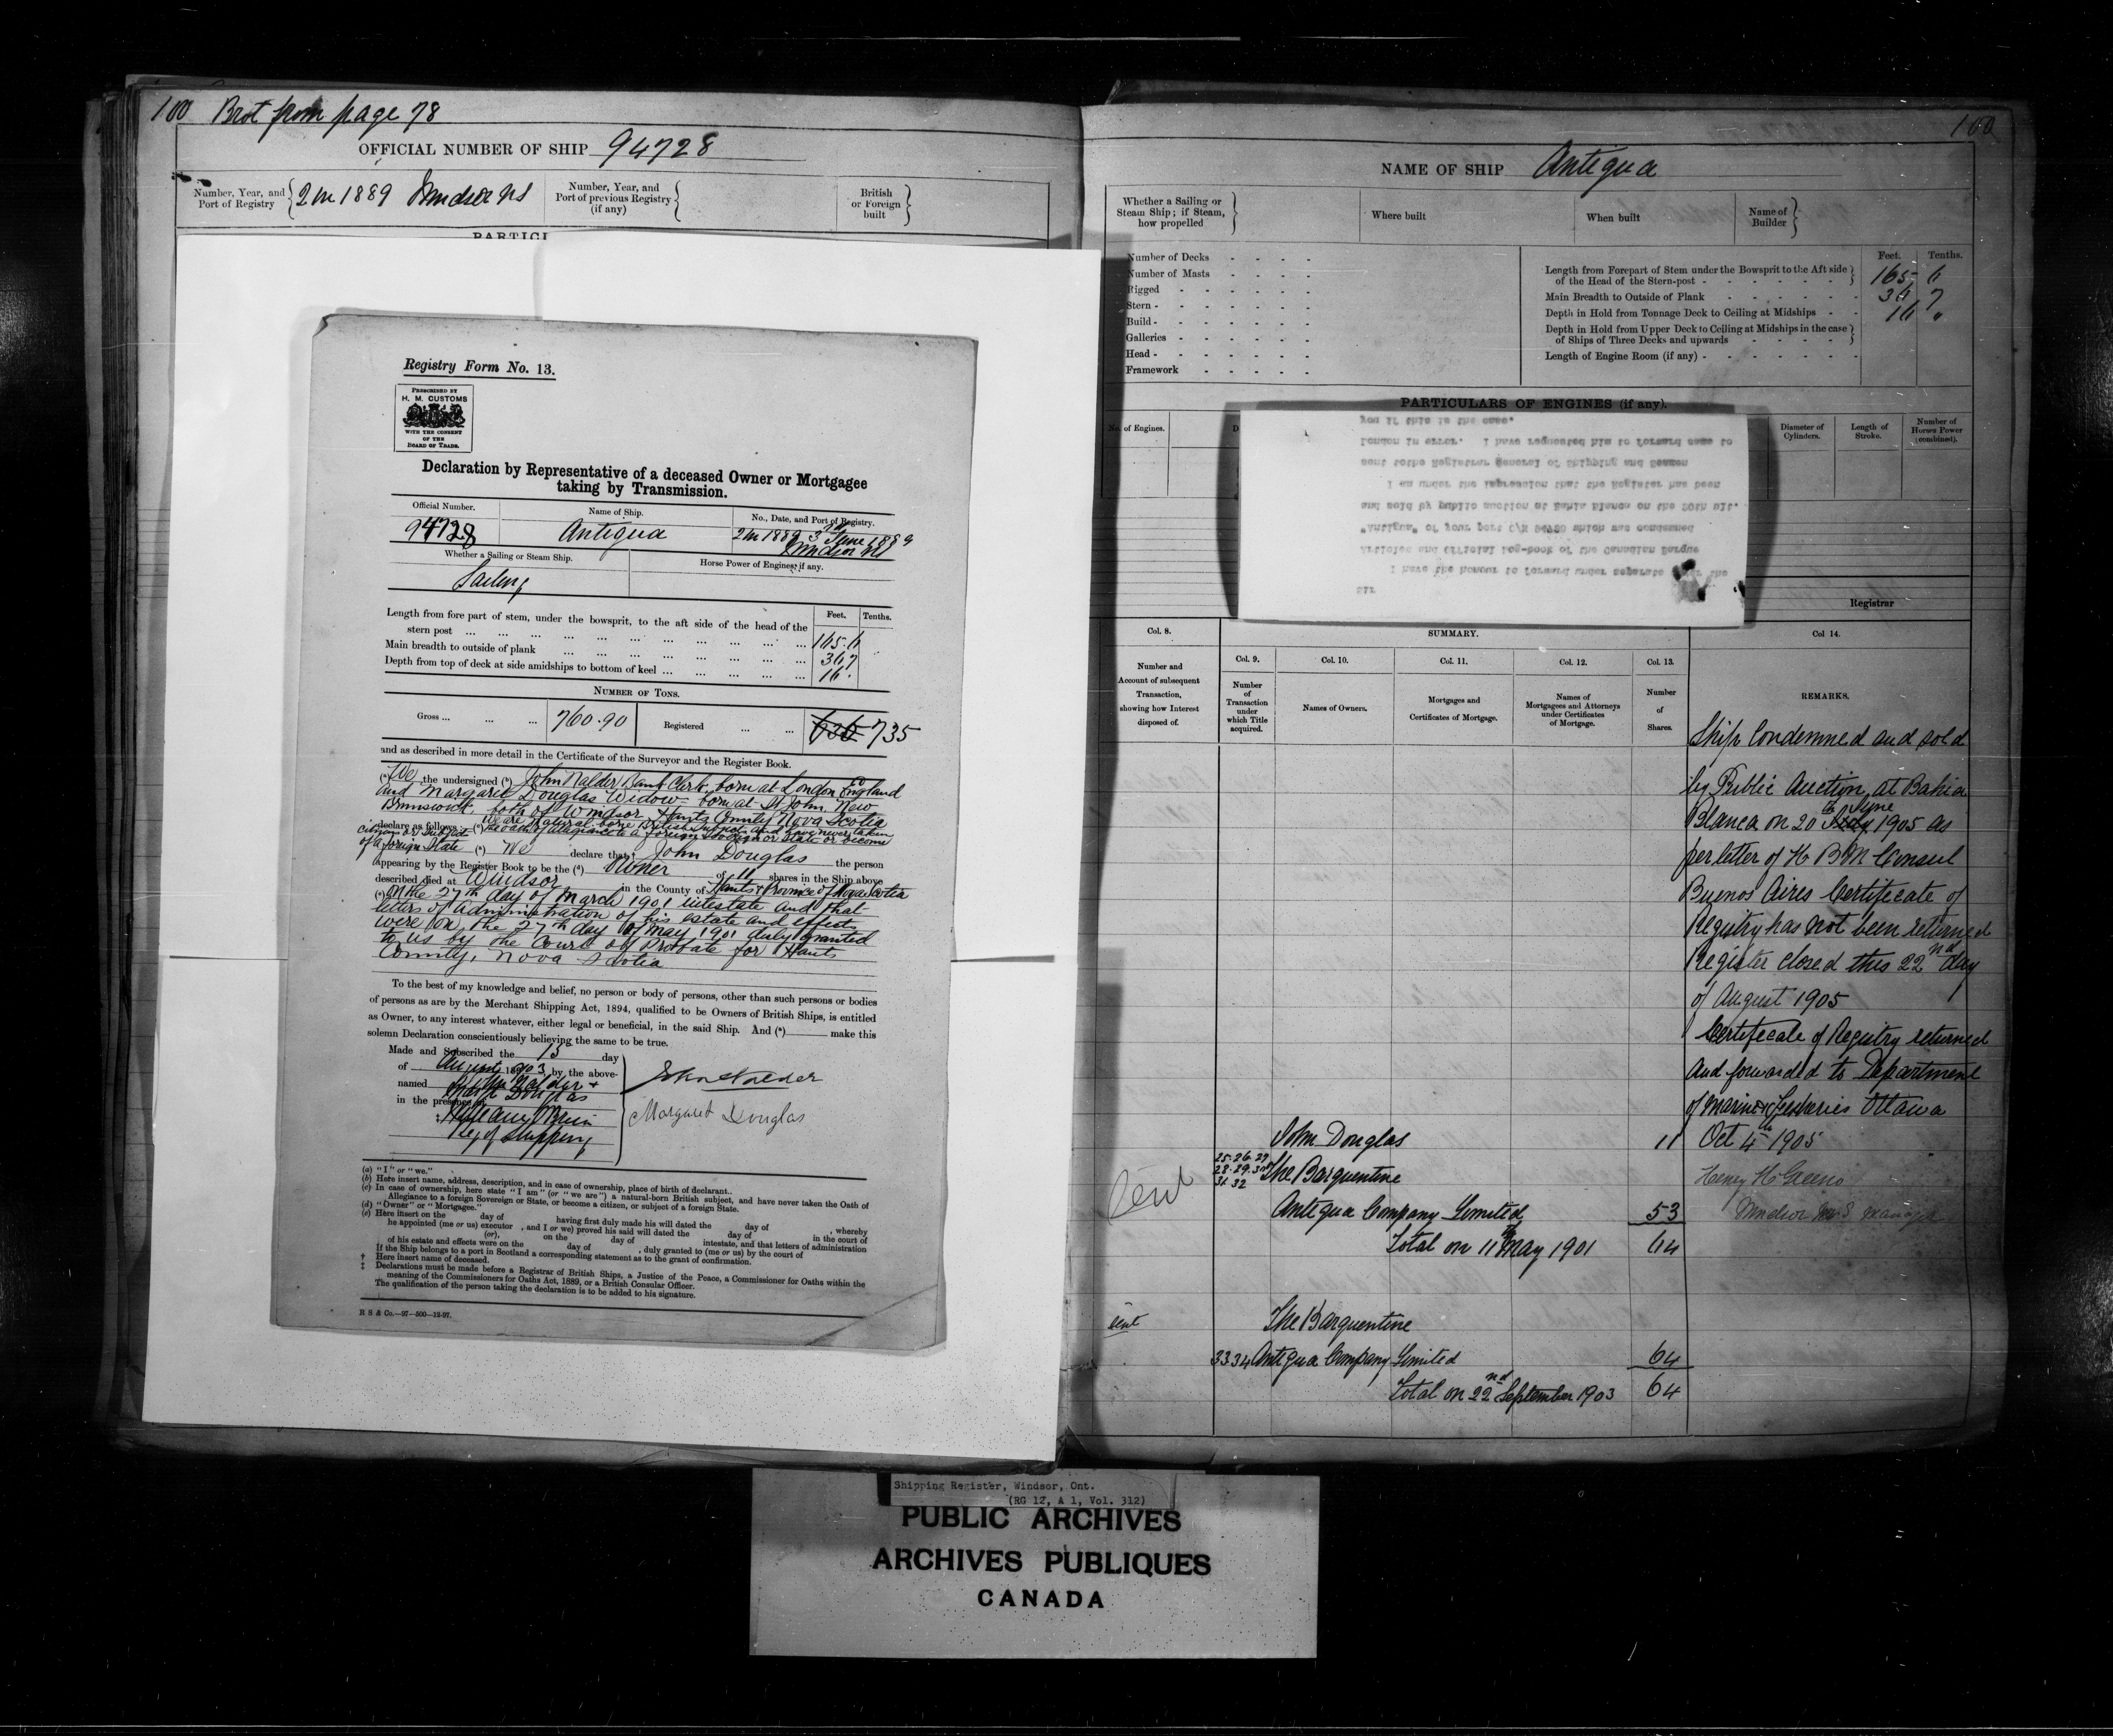 100 Brot from page 78
OFFICIAL NUMBER OF SHIP 94728
Number, Year, and Port of Registry 2 in 1889 Windsor NS
Number, Year, and Port of previous Registry (if any)
British or Foreign built
PARTICU
Registry Form No. 13.
PRESCRIBED BY
H. M. CUSTOMS
WITH THE CONSENT
OF THE
BOARD OF TRADE.
Declaration by Representative of a deceased Owner or Mortgagee
taking by Transmission.
Official Number. Name of Ship. No., Date, and Port of Registry.
94728 Antigua 2 in 1889 3rd June 1889
Windsor NS
Whether a Sailing or Steam Ship. Horse Power of Engines, if any.
Sailing
Feet. Tenths.
Length from fore part of stem, under the bowsprit, to the aft side of the head of the
stern post ... 165.6
Main breadth to outside of plank ... 36.7
Depth from top of deck at side amidships to bottom of keel ... 16.
NUMBER OF TONS.
Gross ... 760.90 Registered ... 636 735
and as described in more detail in the Certificate of the Surveyor and the Register Book.
(a) We the undersigned (b) John Nalder Bank Clerk, born at London England
and Margaret Douglas Widow born at St John, New
Brunswick, both of Windsor, Hants County, Nova Scotia
declare as follows (c) We are Natural born British subjects and have never taken
the oath of allegiance to a foreign Sovereign or State or become
citizen or subject
of a foreign State (a) We declare that † John Douglas the person
appearing by the Register Book to be the (d) Owner of 11 shares in the Ship above
described died at Windsor in the County of Hants & Province of Nova Scotia
(e) on the 27th day of March 1901 intestate and that
letters of administration of his estate and effects
were on the 27th day of May 1901 duly granted
to us by the Court of Probate for Hants
County, Nova Scotia
To the best of my knowledge and belief, no person or body of persons, other than such persons or bodies
of persons as are by the Merchant Shipping Act, 1894, qualified to be Owners of British Ships, is entitled
as Owner, to any interest whatever, either legal or beneficial, in the said Ship. And (a) make this
solemn Declaration conscientiously believing the same to be true.
Made and Subscribed the 13 day
of August 1903, by the above-
named John Nalder +
Margt Douglas
in the presence of
Reg of Shipping
John Nalder
Margaret Douglas
(a) "I" or "we."
(b) Here insert name, address, description, and in case of ownership, place of birth of declarant.
(c) In case of ownership, here state "I am" (or "we are") a natural-born British subject, and have never taken the Oath of
Allegiance to a foreign Sovereign or State, or become a citizen, or subject of a foreign State.
(d) "Owner" or "Mortgagee."
(e) Here insert on the day of having first duly made his will dated the day of , whereby
he appointed (me or us) executor , and I or we) proved his said will dated the day of in the court of
(or), on the day of intestate, and that letters of administration
of his estate and effects were on the day of , duly granted to (me or us) by the court of
If the Ship belongs to a port in Scotland a corresponding statement as to the grant of confirmation.
† Here insert name of deceased.
‡ Declarations must be made before a Registrar of British Ships, a Justice of the Peace, a Commissioner for Oaths within the
meaning of the Commissioners for Oaths Act, 1889, or a British Consular Officer.
The qualification of the person taking the declaration is to be added to his signature.
R S & Co.—97—500—12-97.
100
NAME OF SHIP Antigua
Whether a Sailing or Steam Ship; if Steam, how propelled
Where built
When built
Name of Builder
Number of Decks
Number of Masts
Rigged
Stern
Build
Galleries
Head
Framework
Feet. Tenths.
Length from Forepart of Stem under the Bowsprit to the Aft side
of the Head of the Stern-post 165 6
Main Breadth to Outside of Plank 36 7
Depth in Hold from Tonnage Deck to Ceiling at Midships 16 "
Depth in Hold from Upper Deck to Ceiling at Midships in the case
of Ships of Three Decks and upwards
Length of Engine Room (if any)
PARTICULARS OF ENGINES (if any).
No. of Engines.
Diameter of Cylinders.
Length of Stroke.
Number of Horses Power (combined).
Sir
I have the honour to forward under separate the
Articles and Official Log-book of the Canadian Barque
"Antigua" of your port O/N 94728 which was condemned
and sold by public auction at Bahia Blanca on the 20th ult.
I am under the impression that the Register has been
sent tothe Registrar General of Shipping and Seamen
London in error. I have requested him to forward same to
you if this is the case.
Registrar
Col. 8. SUMMARY. Col 14.
Col. 9. Col. 10. Col. 11. Col. 12. Col. 13.
Number and Account of subsequent Transaction, showing how Interest disposed of.
Number of Transaction under which Title acquired.
Names of Owners.
Mortgages and Certificates of Mortgage.
Names of Mortgagees and Attorneys under Certificates of Mortgage.
Number of Shares.
REMARKS.
Ship Condemned and sold
by Public Auction at Bahia
Blanca on 20th July June 1905 as
per letter of H B M Consul
Buenos Aires Certificate of
Registry has not been returned
Register closed this 22nd day
of August 1905
Certificate of Registry returned
and forwarded to Department
of Marine & Fisheries Ottawa
Oct 4th 1905
John Douglas 11
25.26.27
28.29.30
31 32 The Barquentine
Antigua Company Limited 53
Total on 11th May 1901 64
The Barquentine
33 34 Antigua Company Limited 64
Total on 22nd September 1903 64
Shipping Register, Windsor, Ont.
(RG 12, A 1, Vol. 312)
PUBLIC ARCHIVES
ARCHIVES PUBLIQUES
CANADA